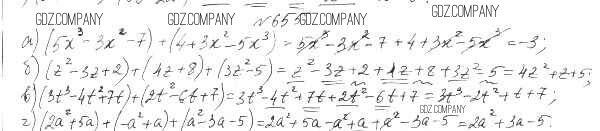 GDZ.COMPANY GDZ.COMPANY GDZ.COMPANY
№ 653
а) (5x³-3x²-7)+(4+3x²-5x³)=5x³-3x²-7+4+3x²-5x³=-3;
б) (z²-3z+2)+(4z+8)+(3z²-5)=z²-3z+2+4z+8+3z²-5=4z²+z+5;
в) (3t³-4t²+7t)+(2t²-6t+7)=3t³-4t²+7t+2t²-6t+7=3t³-2t²+t+7;
GDZ.COMPANY
г) (2a²+5a)+(-a²+a)+(a²-3a-5)=2a²+5a-a²+a+a²-3a-5=2a²+3a-5.